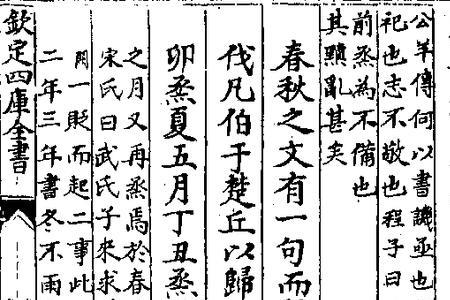 公羊傳何以書譏亟也
祀也志不敬也程子曰
前烝為不備也
其黷亂甚矣
春秋之文有一句而
伐凡伯于楚丘以歸
卯烝夏五月丁丑烝
之月又再烝焉於春
宋氏曰武氏子來求
用一貶而起二事此
二年三年書冬不雨
欽定四庫全書